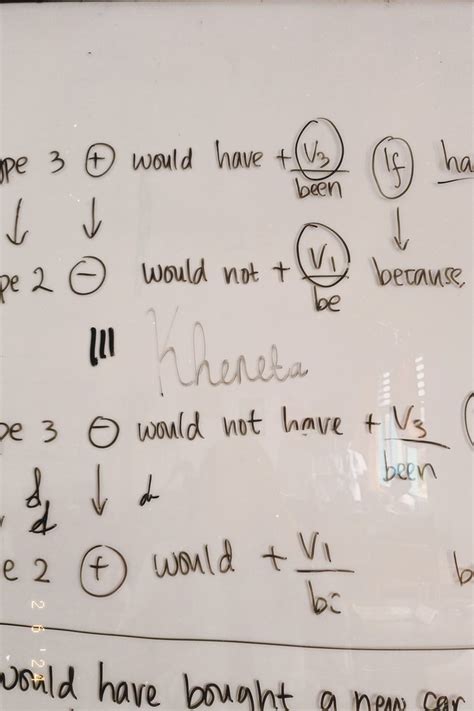 ype 3 ⊕ would have + V3 If ha
been
↓ ↓ ↓
pe 2 ⊖ would not + V1 because,
be
Kheneta
pe 3 ⊖ would not have + V3
been
d ↓
d
e 2 ⊕ would + V1 b
be
26'24
would have bought a new car